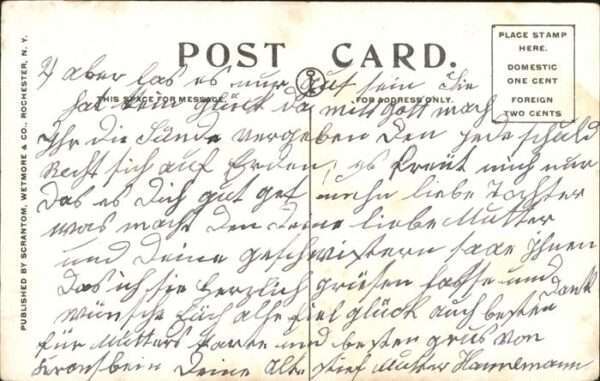 POST CARD.
THIS SPACE FOR MESSAGE.
FOR ADDRESS ONLY.
PLACE STAMP
HERE.
DOMESTIC
ONE CENT
FOREIGN
TWO CENTS
PUBLISHED BY SCRANTOM, WETMORE & CO., ROCHESTER, N. Y.
2) aber las es nur gut sein Sie
hat kein Glück da mit Gott mag
Ihr die Sünde vergeben den jede schuld
Recht sich auf Erden, es freut mich nur
das es Dich gut get mehn liebe Tochter
was macht den deine liebe Mutter
und Deine geschwistern sage ihnen
das ich sie herzlich grüsen lasse und
wünsche Euch alle fiel glück auch besten Dank
für Mutters Karte und besten grus von
Deine alte stief Mutter Hannemann